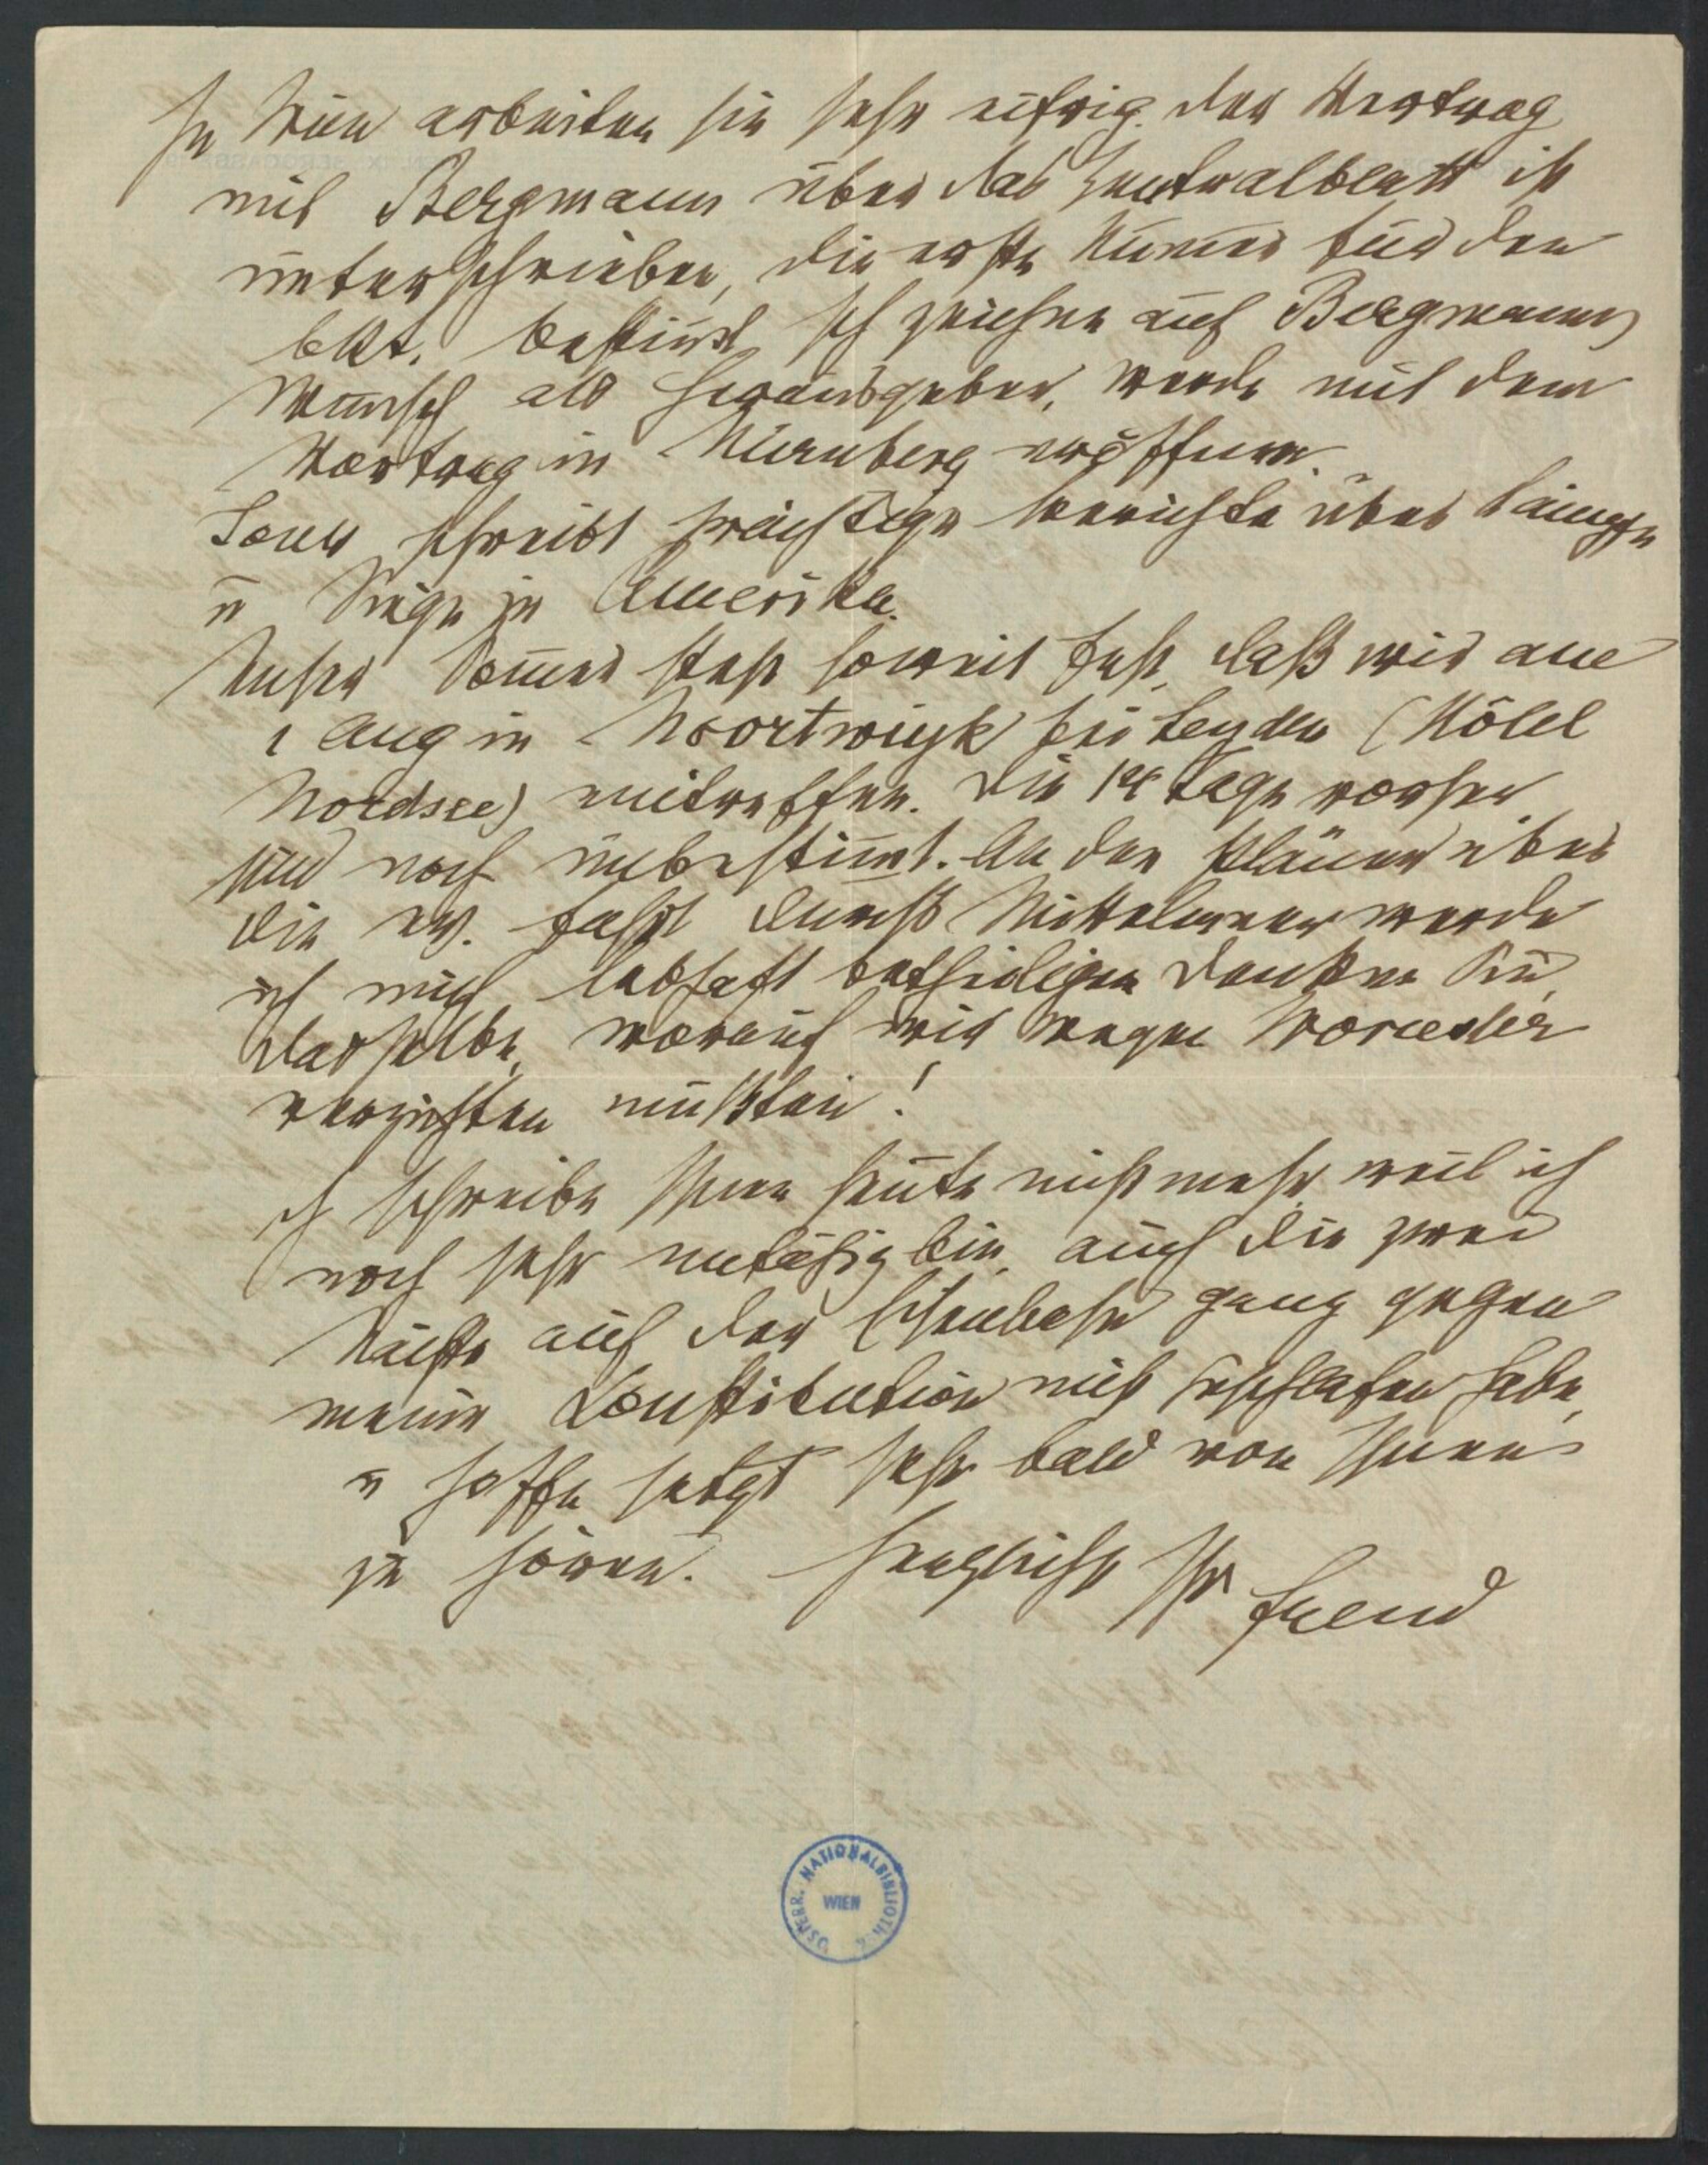 In Wien arbeiten sie sehr eifrig. Der Vertrag
mit Bergmann über das Zentralblatt ist
unterschrieben, die erste Nummer für den
1 Okt. bestimmt. Ich zeichne auf Bergmanns
Wunsch als Herausgeber, werde mit dem
Vortrag in Nürnberg eröffnen.
Jones schreibt prächtige Berichte über Kämpfe
u Siege in Amerika.
Unser Sommer steht soweit fest, daß wir am
1 Aug in Noortwijk bei Leyden (Hôtel
Nordsee) eintreffen. Die 14 Tage vorher
sind noch unbestimmt. An den Plänen über
die ev. Fahrt durchs Mittelmeer werde
ich mich lebhaft beteiligen. Denken Sie,
dasselbe, worauf wir wegen Worcester
verzichten mußten!
Ich schreibe Ihnen heute nicht mehr, weil ich
noch sehr unfähig bin, auch die zwei
Nächte auf der Eisenbahn ganz gegen
meine Konstitution nicht geschlafen habe,
u hoffe jetzt sehr bald von Ihnen
zu hören. Herzlich Ihr Freud
ÖSTERR. NATIONALBIBLIOTHEK
WIEN